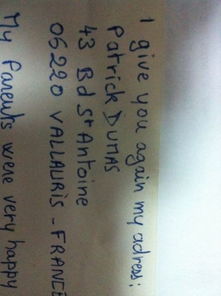 I give you again my adress:
Patrick DUMAS
43 Bd St Antoine
06220 VALLAURIS - FRANCE
My parents were very happy